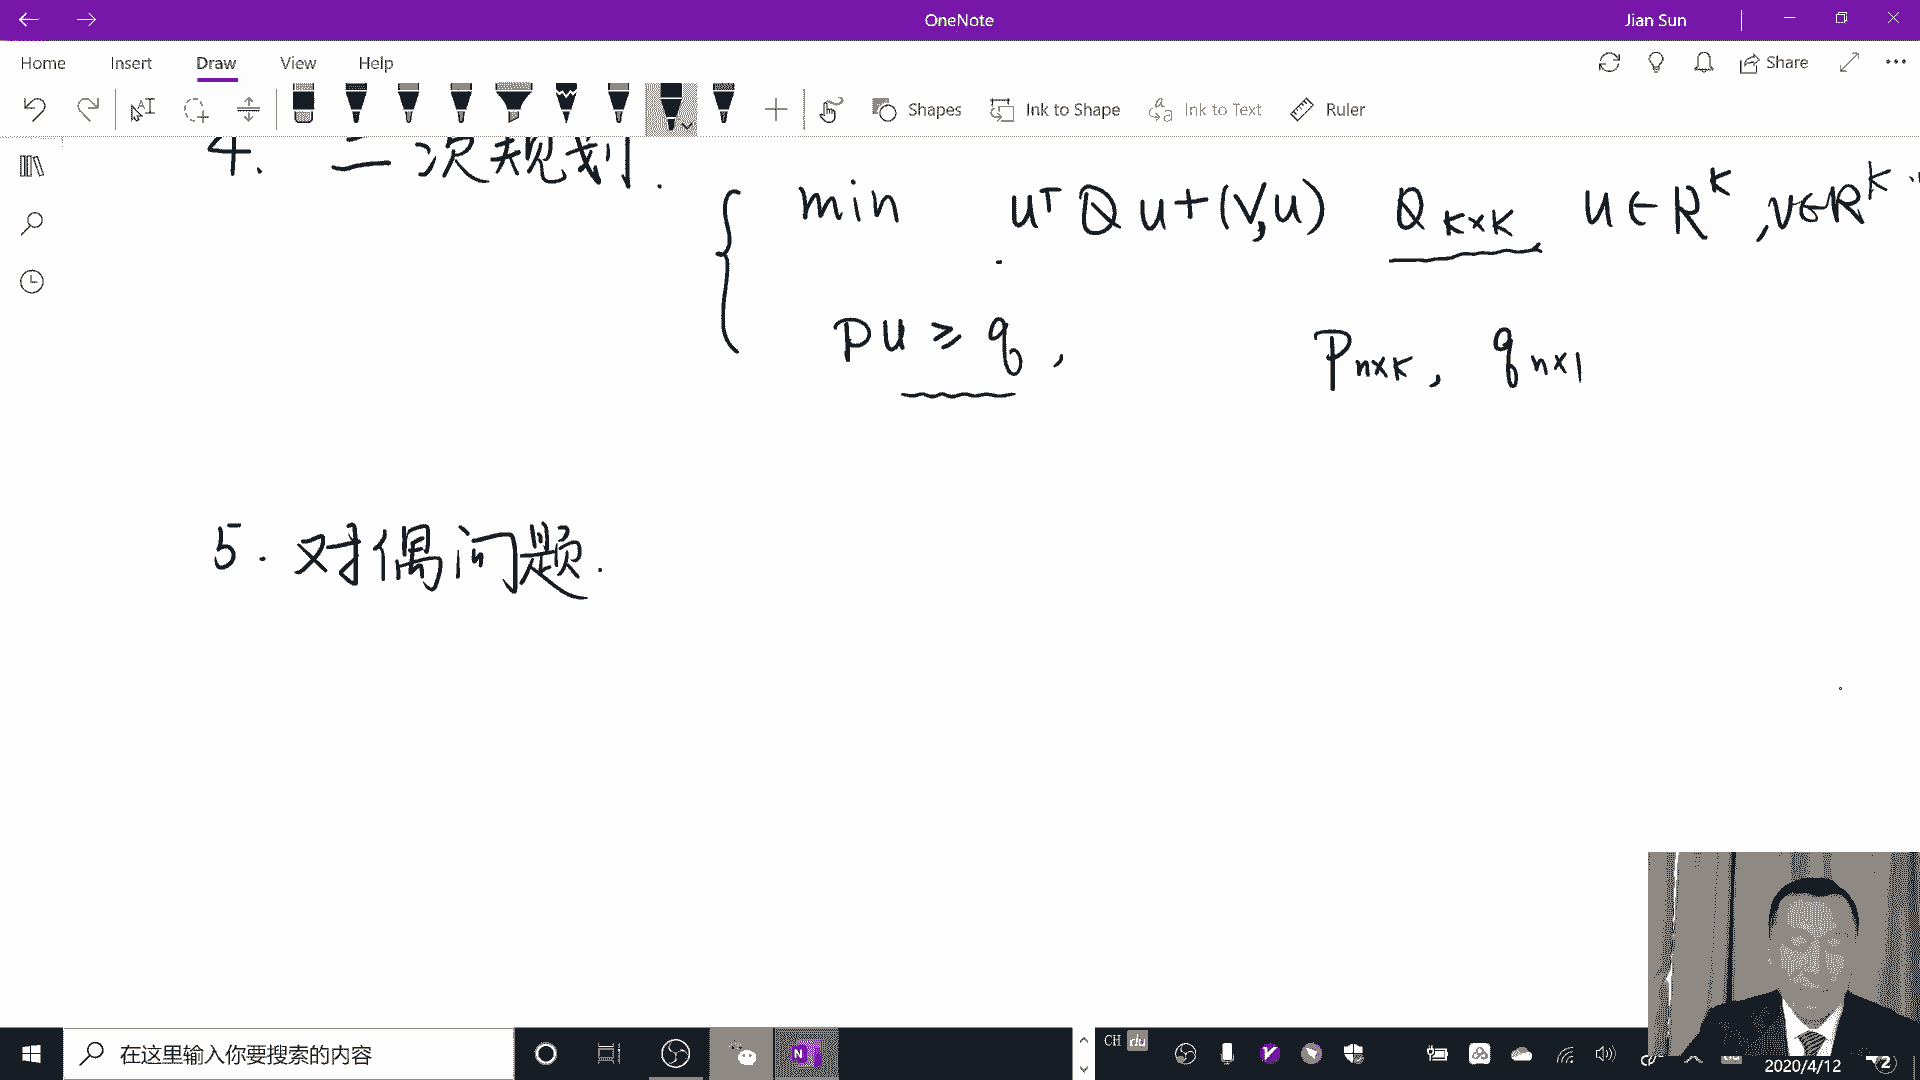 OneNote
Jian Sun
Home Insert Draw View Help
Share
Shapes Ink to Shape Ink to Text Ruler
4. 二次规划.
min uᵀQu+(V,u) Q K×K u∈R^K, v∈R^K.
Pu ≥ q, P n×K, q n×1
5. 对偶问题.
在这里输入你要搜索的内容
CH
2020/4/12
2